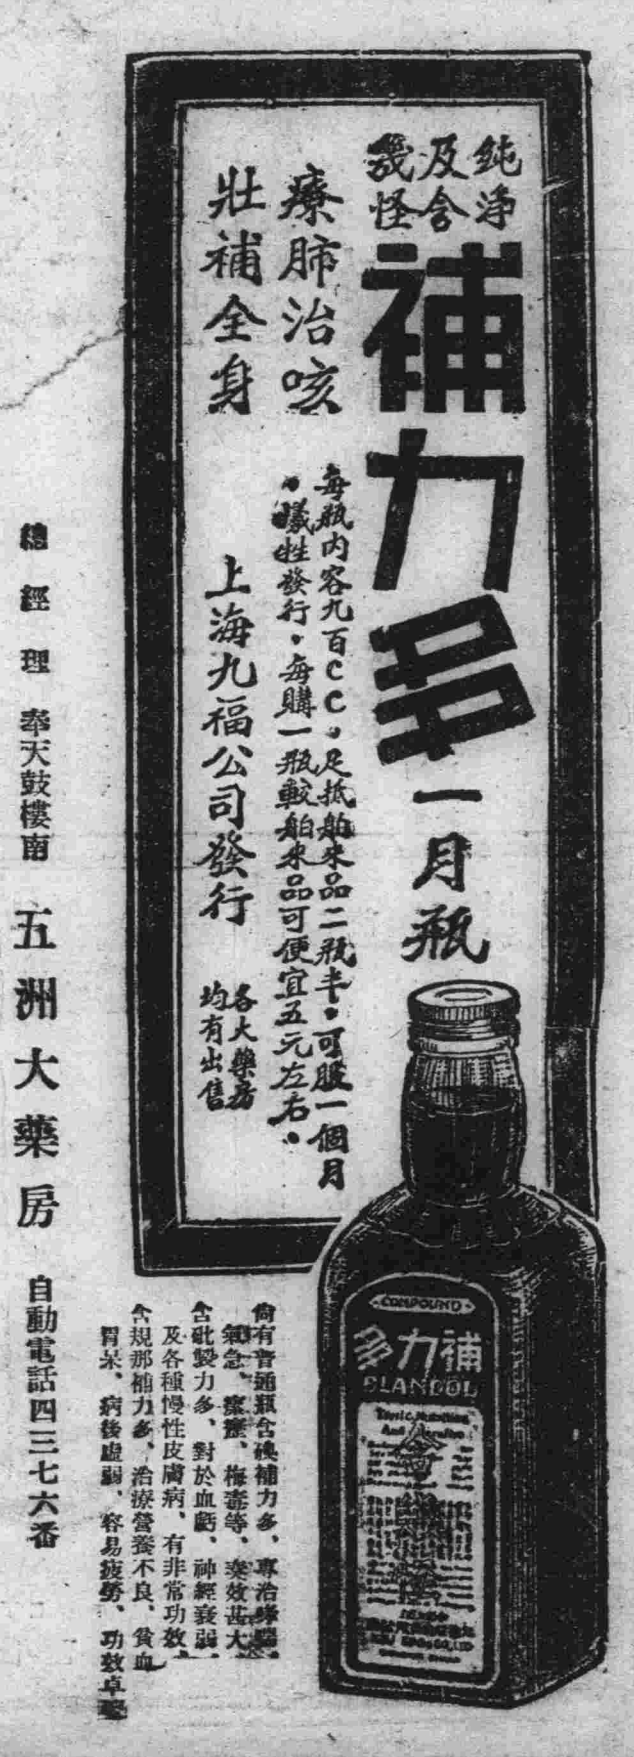 純净
及含
幾怪
補力多
一月瓶
療肺治咳
壯補全身
每瓶内容九百CC，足抵舶来品二瓶半。可服一個月
。犧牲發行。每購一瓶較舶来品可便宜五元左右。
上海九福公司發行
各大藥房
均有出售
COMPOUND
補力多
BLANDOL
尚有普通瓶含碘補力多、專治
氣急、瘰癧、梅毒等、奏效甚大
含砒製力多、對於血虧、神經衰弱
及各種慢性皮膚病、有非常功效
含規那補力多、治療營養不良、貧血
胃呆、病後虛弱、容易疲勞、功效卓
總經理 奉天鼓樓南 五洲大藥房 自動電話四三七六番